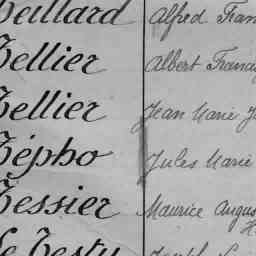 Teillard Alfred Fran
Tellier Albert Franci
Tellier Jean Marie J
Tépho Jules Marie
Tessier Maurice Augus
Le Testu Joseph